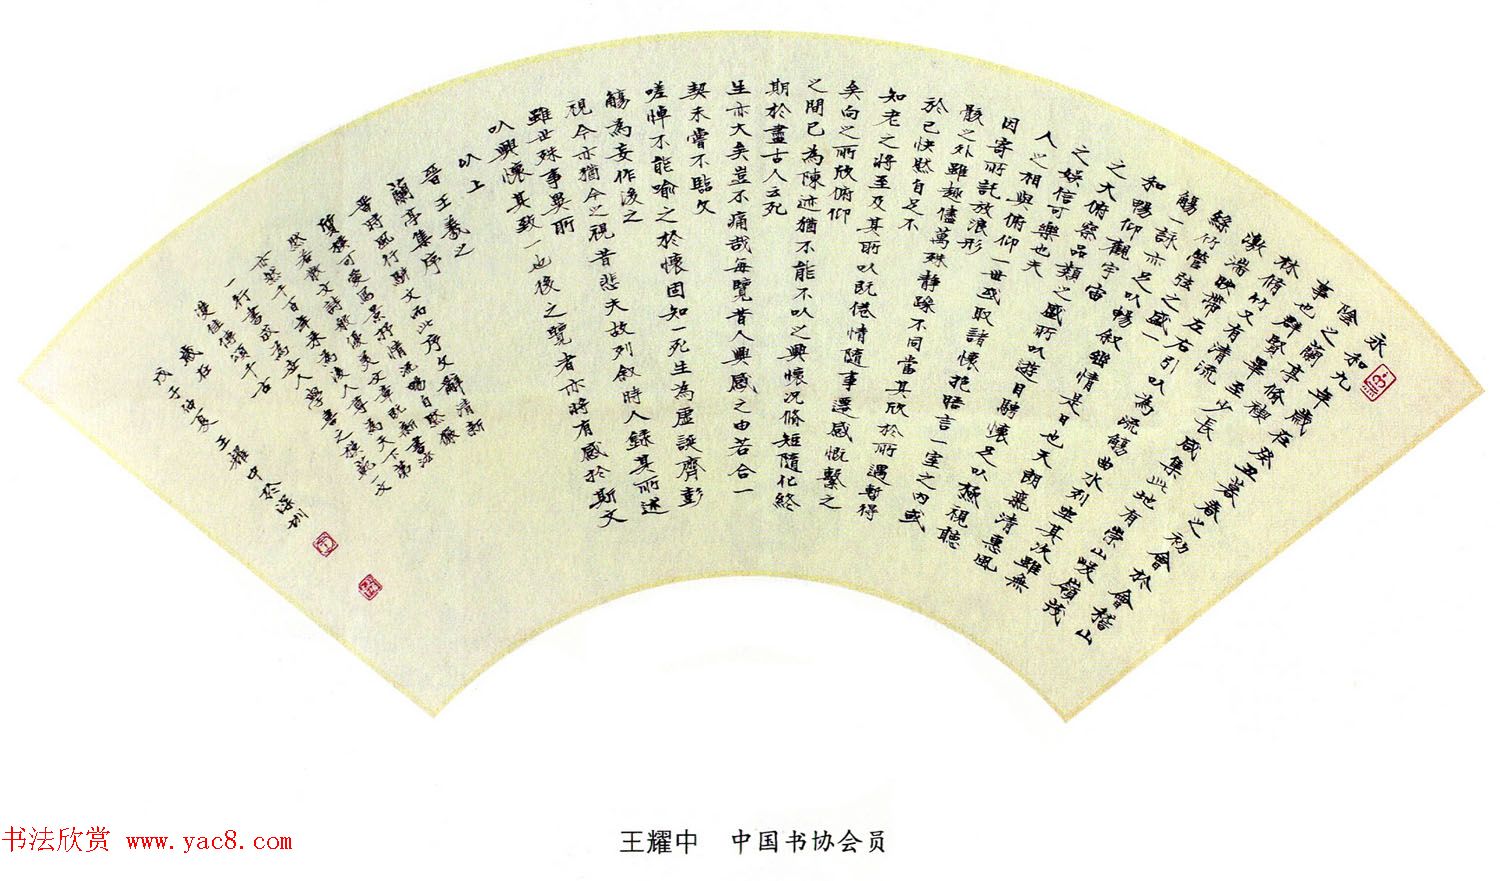 永和九年歲在癸丑暮春之初會於會稽山
陰之蘭亭脩禊
事也群賢畢至少長咸集此地有崇山峻嶺茂
林脩竹又有清流
激湍映帶左右引以為流觴曲水列坐其次雖無
絲竹管弦之盛一
觴一詠亦足以暢敘幽情是日也天朗氣清惠風
和暢仰觀宇宙
之大俯察品類之盛所以遊目騁懷足以極視聽
之娛信可樂也夫
人之相與俯仰一世或取諸懷抱晤言一室之內或
因寄所託放浪形
骸之外雖趣儘萬殊靜躁不同當其欣於所遇暫得
於己快然自足不
知老之將至及其所以既倦情隨事遷感慨繫之
矣向之所欣俯仰
之間已為陳迹猶不能不以之興懷況脩短隨化終
期於盡古人云死
生亦大矣豈不痛哉每覽昔人興感之由若合一
契未嘗不臨文
嗟悼不能喻之於懷固知一死生為虛誕齊彭
觴為妄作後之
視今亦猶今之視昔悲夫故列敘時人錄其所述
雖世殊事異所
以興懷其致一也後之覽者亦將有感於斯文
以上
晉王羲之
蘭亭集序
晉時風行駢文而此序文辭清新
質樸可愛寫景抒情流暢自然雖
然若散文詩般優美文章既新書法
亦然千百年來為後人尊為天下第
一行書成為世人學書之模範文
雙佳傳頌千古
歲在
戊子仲夏王耀中於深圳
王耀中 中国书协会员
书法欣赏 www.yac8.com